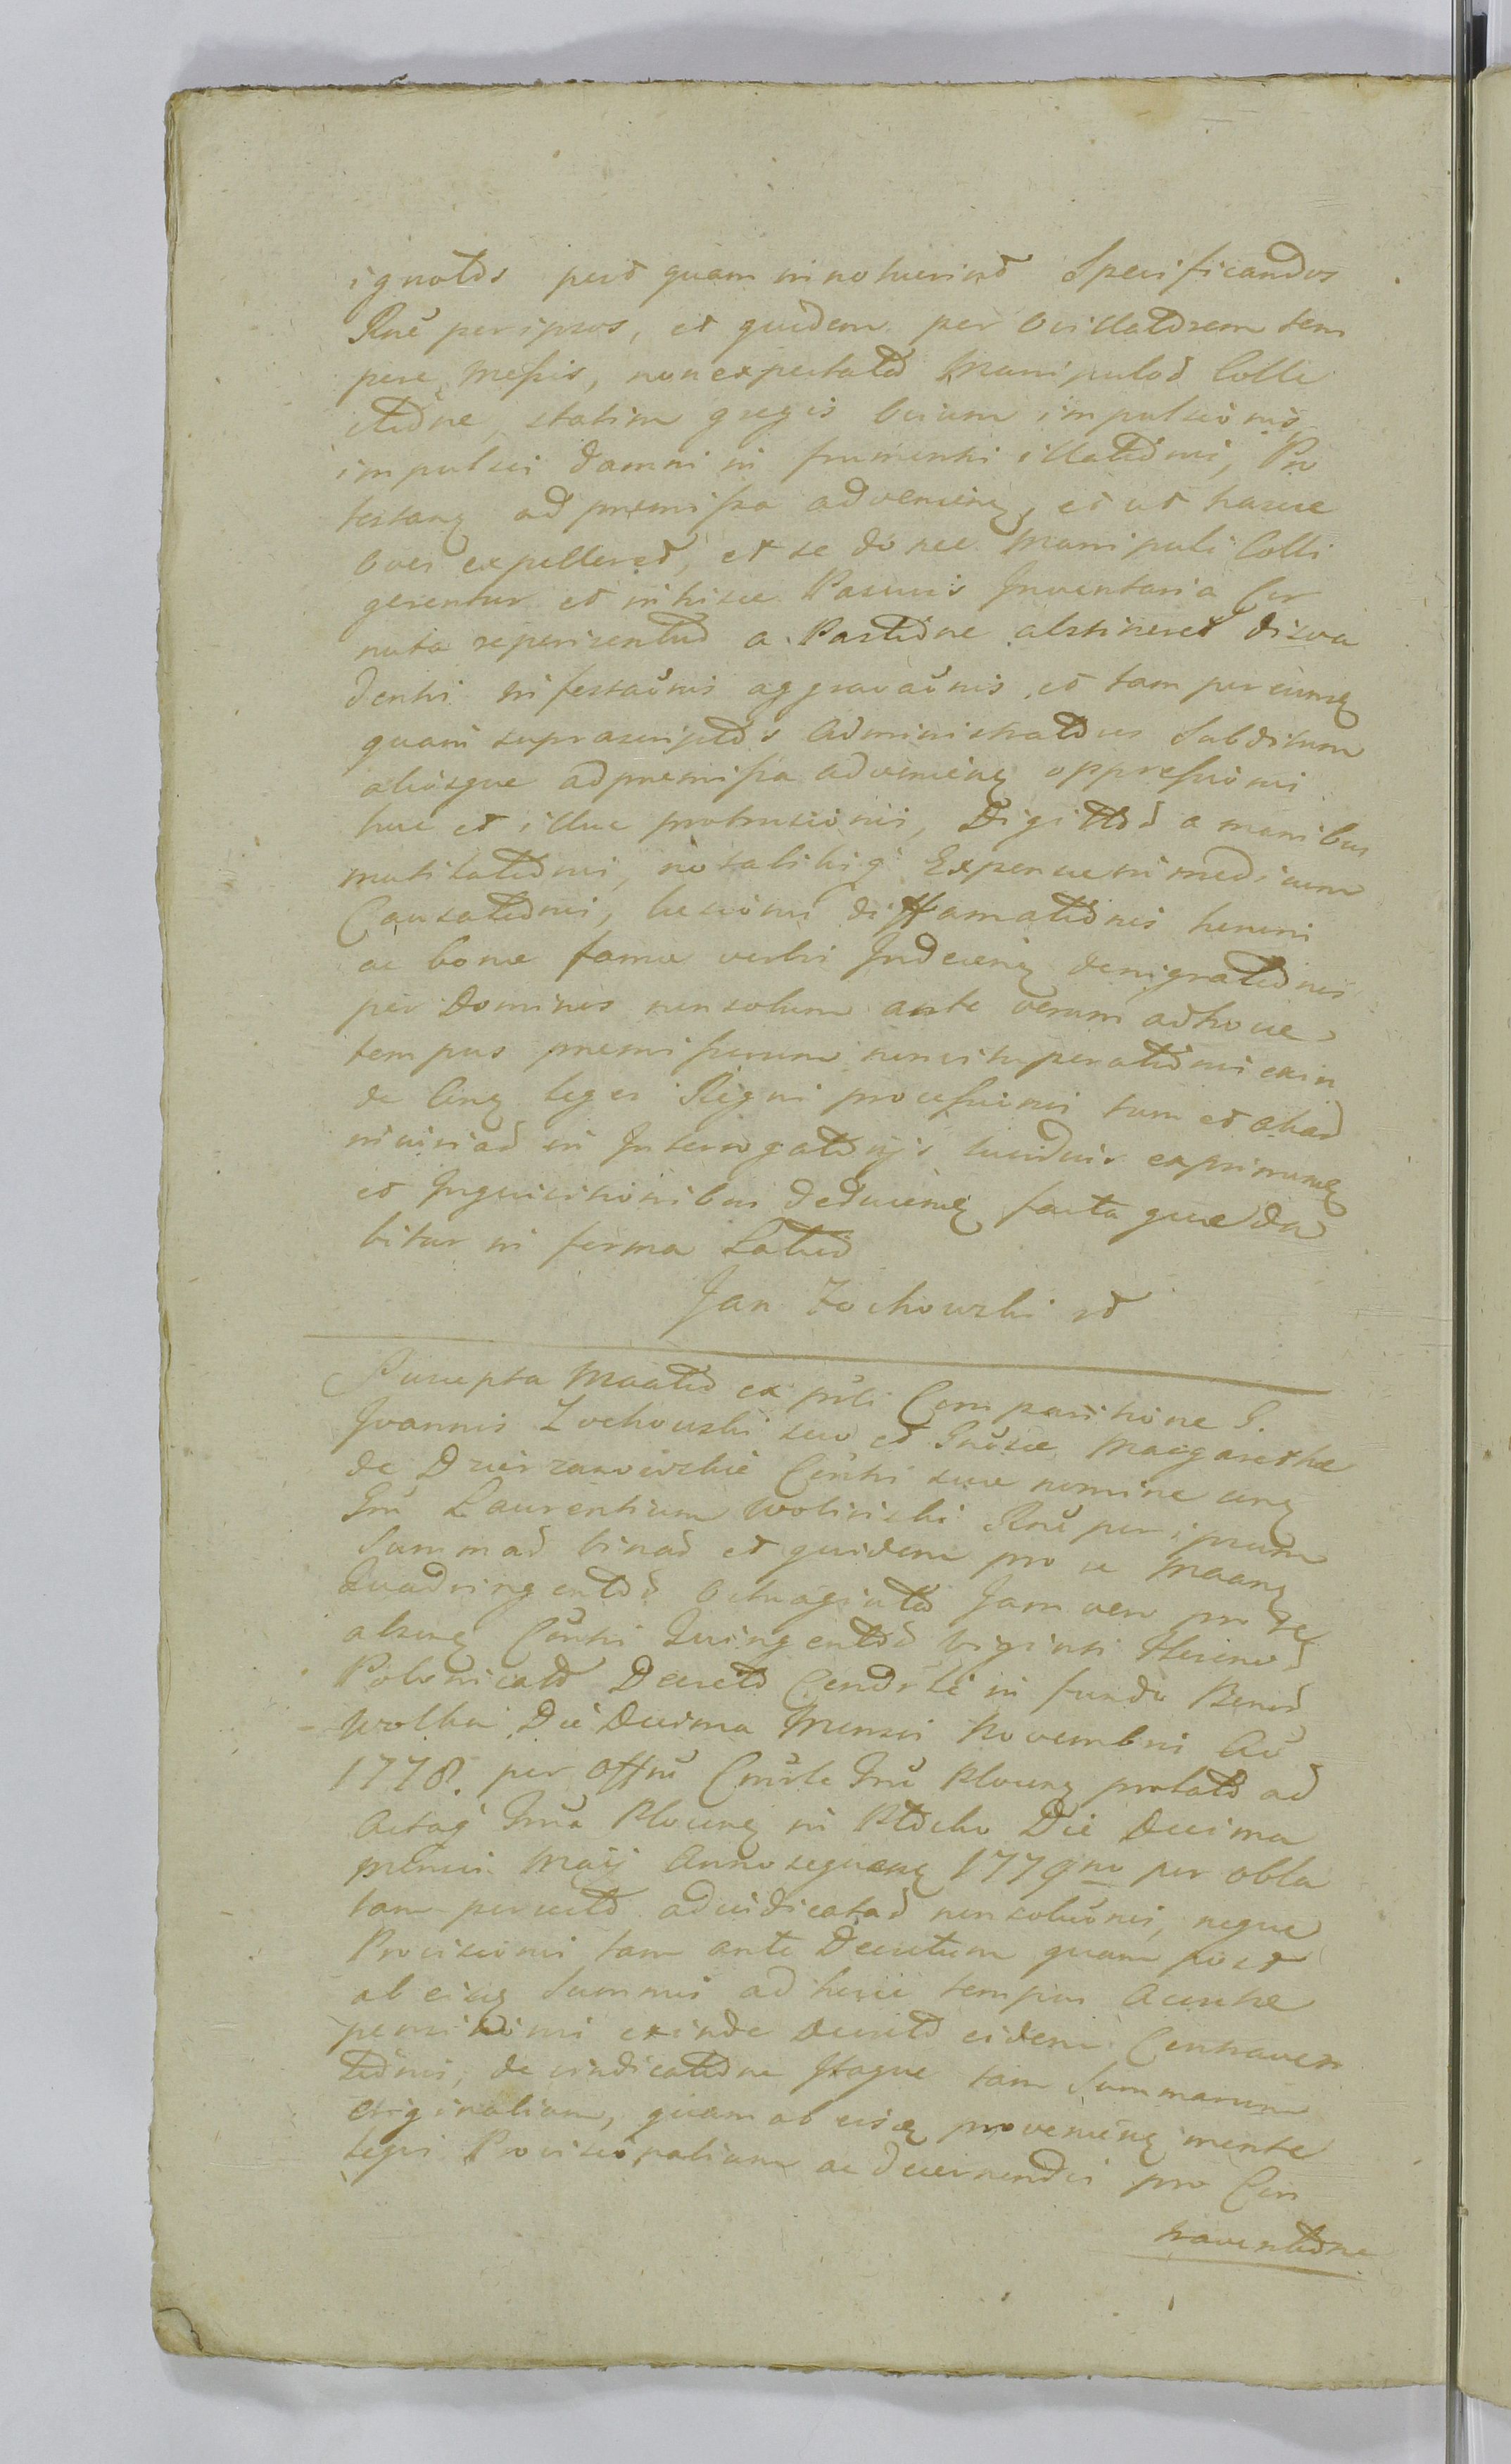 ignotos post quam innotuerint Specificandos
Rnẽ per ipsos, et quidem per Ovillatorem tem
pere Messis, non expectata Manipulor Colle
ctione, statim gregis Ovium impulsionis,
impulsi damni in frumentis illationis, Pro
testanq ad præmissa advenienq, et ut hasce
Oves expelleret, et se donec Manipuli Colli
gerentur et in hisce Pascuis Inventaria Cor
nuta reperirentur a Pastione abstineret disva
denti infestaõnis aggravaõnis, et tam per eumq
quam suprascriptos Administratores Subditum
aliosque ad præmissa advenienq oppressionis
huc et illuc protrusionis, Digitor a manibus
mutilationis, Expensæ in medicum
Causationis, læsionis diffamationis honoris
ac bonæ famæ verbis Indecenq denigrationis
per Dominos non solum ante verum ad hocce
tempus præmissorum exin
de Cirq leges Regni processionis tum et aliar
in Interrogatorijs lucidius exprimenq
et Inquisitionibus deducenq facta quæ da
bitur in forma Latiori
Jan Zochowski
Suscepta Maãtio ex põli Comparitione G.
Joannis Zochowski suo et Gnõsæ Margarethæ
de Dzierzanowskie Conthi suæ nomine cirq
Gnũ Laurentium Wolinski Rnẽ per ipsum
Summar binar et quidem pro se Maanq
Quadringentor Octuaginta Jam vero pro se
absenq Conthi Quingentor viginti florenor
Polonicalium Decreto Condrli in fundo Bonor
Wolka Die Decima Mensis Novembris Aõ
1778. per Offm̃ Cm̃rle Gnũ Plocenq prolato ad
Actaq Gnũa Plocenq in Plocko Die Decima
Mensis Maij Anno sequenq 1779no per obla
tam porrecto adiudicatar non soluõnis, neque
Provisionis tam ante Decretum quam post
ab eisq Summis ad hocce tempus Accretæ
pensionis exinde Decreto eidem Contraven
tionis, de vindicatione Itaque tam Summarum
originalium, quam ab eisq provenienq mente
legis Provisionalium ac decernendis pro Con
traventione